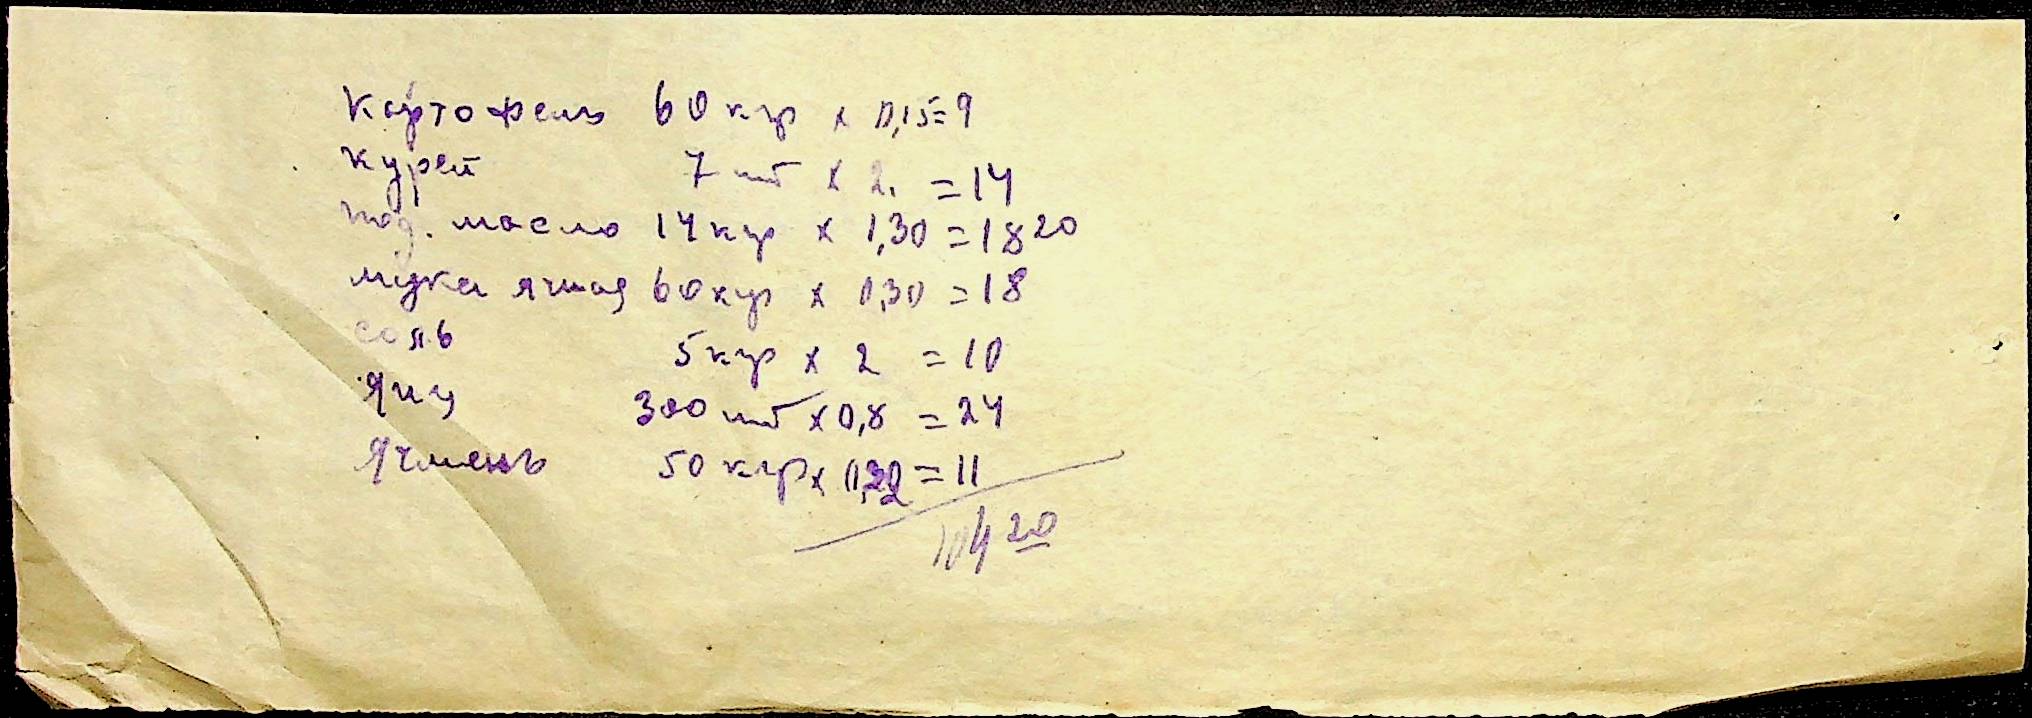 Картофель 60 кгр х 0,15=9
курей 7 шт х 2. =14
под. масло 14 кгр х 1,30 =18 20
мука ячная 60 кгр х 0,30 =18
соль 5 кгр х 2 =10
Яиц 300 шт х 0,8 =24
Ячмень 50 кгр х 0,22 =11
104 20